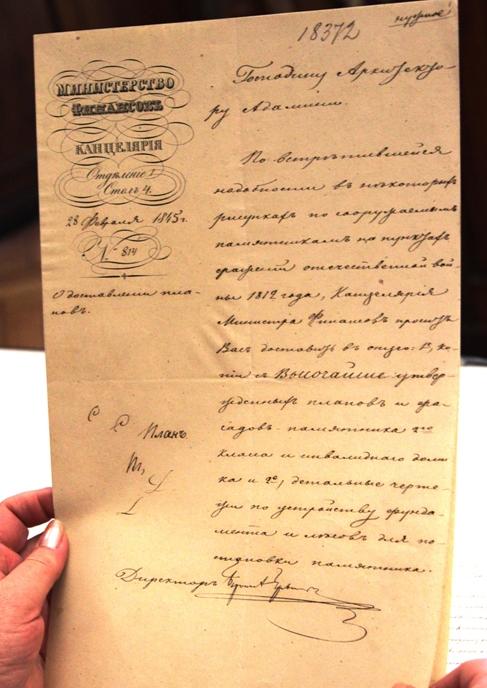 18372
нужное
МИНИСТЕРСТВО
ФИНАНСОВЪ
КАНЦЕЛЯРІЯ
Отдѣленіе I
Столъ 4.
28 Февраля 1845 г.
№ 814
О доставленіи пла-
новъ.
Господину Архитекто-
ру Адамини.
По встрѣтившейся
надобности въ нѣкоторыхъ
рисункахъ по сооружаемымъ
памятникамъ на пунктахъ
сраженій отечественной вой-
ны 1812 года, Канцелярія
Министра Финансовъ проситъ
Васъ доставить въ оную: 1е, ко-
піи съ Высочайше утвер-
жденныхъ плановъ и фа-
садовъ памятника 2го
класса и инвалиднаго доми-
ка и 2е, детальные черте-
жи по устройству фунда-
мента и лѣсовъ для по-
становки памятника.
С С Планъ
Директоръ